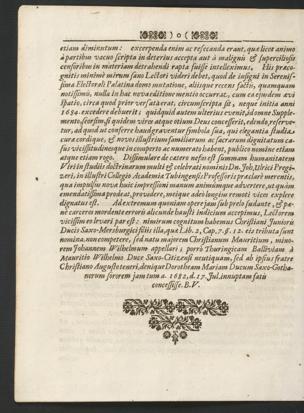 ) o (
etiam diminutum: excerpenda enim ac resecanda erant, quæ licet animo
à partibus vacuo scripta in deterius accepta aut à malignis & superciliosis
censoribus in materiam detrahendi rapta fuisse intelleximus. His præco-
gnitis minimè mirum sanè Lectori videri debet, quod de insigni in Serenis-
sima Electorali Palatina domo mutatione, alitisque recens factis, quamquam
notissimis, nulla in hac nova editione mentio occurrat, cum ea ejusdem ævi
spatio, circa quod prior versata erat, circumscripta sit, neque initia anni
1684. excedere debuerit: quidquid autem ulterius evenit, id omne Supple-
mento, seorsim, si quidem vires atque otium Deus concesserit, edendo, reserve-
tur, ad quod ut conferre haud graventur symbola sua, qui elegantia studia
curæ cordique, & novis illustrium familiarum ac sacrarum dignitatum ca-
sus vicissitudinesque in comperto ac numerato habent, publico nomine etiam
atque etiam rogo. Dissimulare de cætero nefas est summam humanitatem
Viri in studiis doctrinarum multò & celebrati nominis Dn. Joh. Ulrici Pregi-
zeri, in illustri Collegio Academiæ Tubingensis Professoris præclarè merentis,
qua impulsus novæ huic impressioni manum animumque advertere, ut quàm
emendatissima prodeat, providere, meique adeo longius remoti vicem explere
dignatus est. Ad extremum quoniam opere jam sub prelo sudante, & pæ-
nè carcerem mordente erroris alicunde hausti indicium accepimus, Lectorem
vicissim ex levari par est: nimirum cognitum habemus Christiani Junioris
Ducis Saxo-Mersiburgici filiis illa, quæ Lib. 2, Cap. 7. §. 12. eis tributa sunt
nomina, non competere, sed natu majorem Christianum Mauritium, mino-
rem Johannem Wilhelmum appellari; porrò Thuringicam Balliviam à
Mauritio Wilhelmo Duce Saxo-Citizensi neutiquam, sed ab ipsius fratre
Christiano Augusto teneri, denique Dorotheam Mariam Ducum Saxo-Gotha-
norum sororem jam tum a. 1682. d. 17. Jul. innuptam fatis
concessisse. B. V.